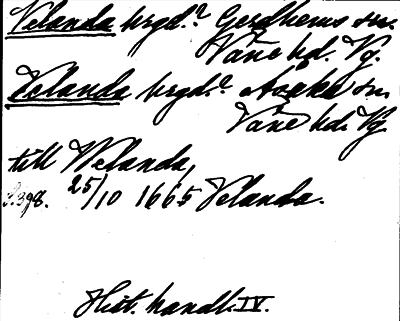 Velanda hrgd.? Gerdhems sn.
Väne hd. Vg.
Velanda hrgd.? Asaka sn.
Väne hd. Vg.
till Welanda,
S.398. 25/10 1665 Velanda.
Hist. handl. IV.